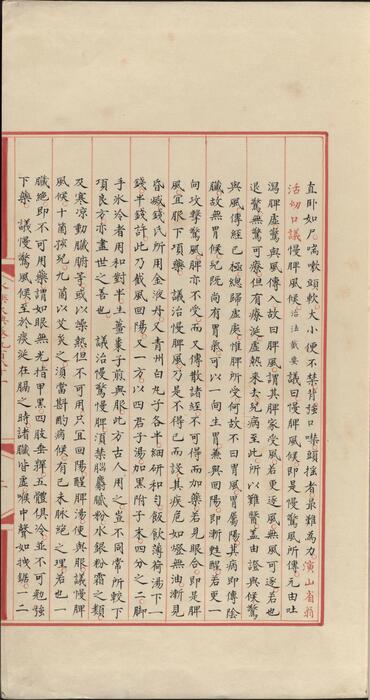 直卧如尺喘嗽頭軟大小便不禁背強口噤頭揺者最難為力演山省翁
活㓜口議慢脾風候治法截要議曰慢脾風候即是慢驚風所傳元由吐
瀉脾虚驚與風傳入故曰脾風謂其脾家受風若更逐風無風可逐若也
退驚無驚可療但有療涎虛熱來去兒病至此所以難醫蓋由證與候驚
與風傳經已極總歸虛處惟脾所受何故不曰胃風胃屬陽其病即傳陰
臟故無胃候紀既尚有胃氣可以一向生胃兼與回陽即漸甦醒若更一
向攻擊驚風脾亦不受而又傳散諸經不可得而加藥若見眼合即是脾
風宜服下項藥　議治慢脾風乃是不得已而談其疾危如燈無油漸見
昏滅錢氏所用金液丹又青州白丸子各半細研和勻飯飲薄荷湯下一
錢半錢許此乃截風回陽又一方以四君子湯加黑附子末四分之二脚
手氷冷者用和對半生薑棗子煎與服此方古人用之豈不同常所較下
項良方亦盡世之吾也　議治慢驚慢脾須禁腦麝膩粉水銀粉霜之類
及寒凉動臟腑等或以燥熱但不可用只宜回陽醒脾湯使與服議慢脾
風候十箇孩兒九箇以艾灸之須當斟酌病候有已未脉絕之理若也一
臟絕即不可用藥謂如眼無光指甲黑四肢垂嚲五體俱冷並不可勉強
下藥　議慢驚風候至於痰涎在膈之時諸臟皆虛喉中聲如拽鋸一二